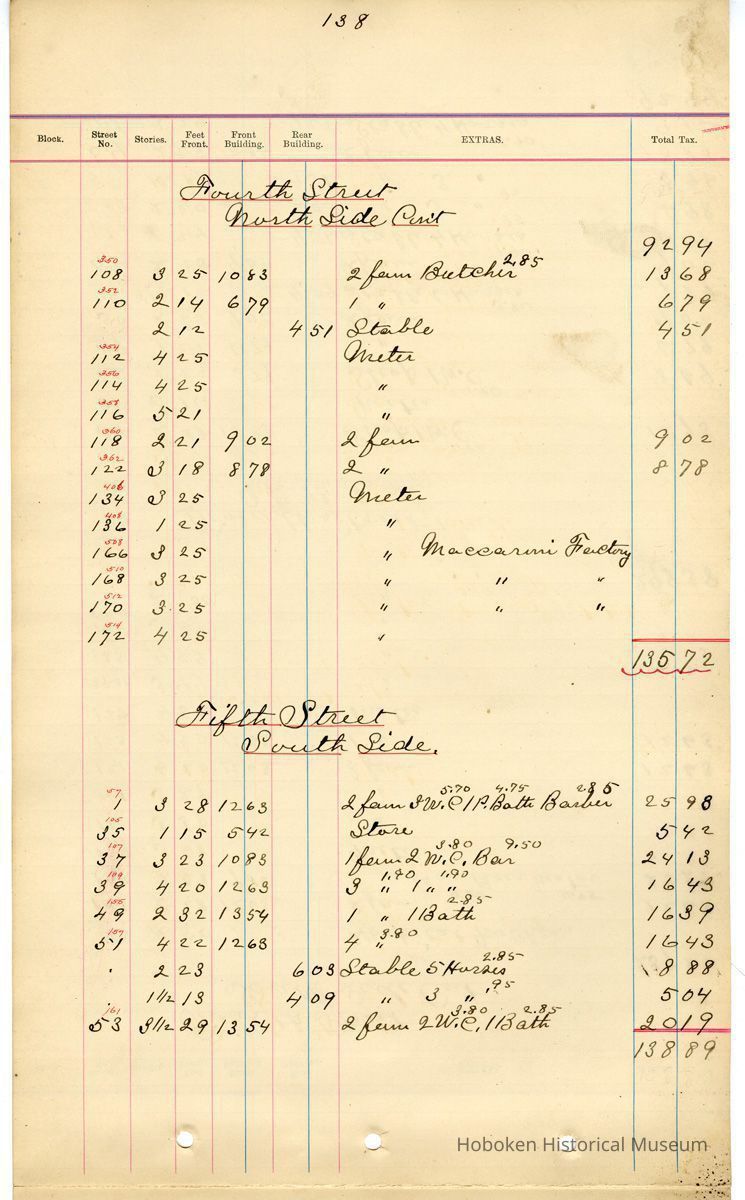 138
Block. Street No. Stories. Feet Front. Front Building. Rear Building. EXTRAS. Total Tax.
Fourth Street
North Side Con't
92 94
350
108 3 25 10 83 2 fam Butcher 2.85 13 68
352
110 2 14 6 79 1 " 6 79
2 12 4 51 Stable 4 51
354
112 4 25 Meter
356
114 4 25 "
358
116 5 21 "
360
118 2 21 9 02 2 fam 9 02
362
122 3 18 8 78 2 " 8 78
406
134 3 25 Meter
408
136 1 25 "
508
166 3 25 " Maccaroni Factory
510
168 3 25 " " "
512
170 3 25 " " "
514
172 4 25 "
135 72
Fifth Street
South Side.
57 5.70 4.75 2.85
1 3 28 12 63 2 fam 3 W.C. 1 P. Bath Barber 25 93
105
35 1 15 5 42 Store 5 42
107 3.80 9.50
37 3 23 10 83 1 fam 2 W.C. Bar 24 13
109 1.90 1.90
39 4 20 12 63 3 " 1 " " 16 43
155 2.85
49 2 32 13 54 1 " 1 Bath 16 39
157 3.80
51 4 22 12 63 4 " 16 43
2.85
2 23 6 03 Stable 5 Horses 8 88
.95
1 1/2 13 4 09 " 3 " 5 04
161 3.80 2.85
53 3 1/2 29 13 54 2 fam 2 W.C. 1 Bath 20 19
138 89
Hoboken Historical Museum